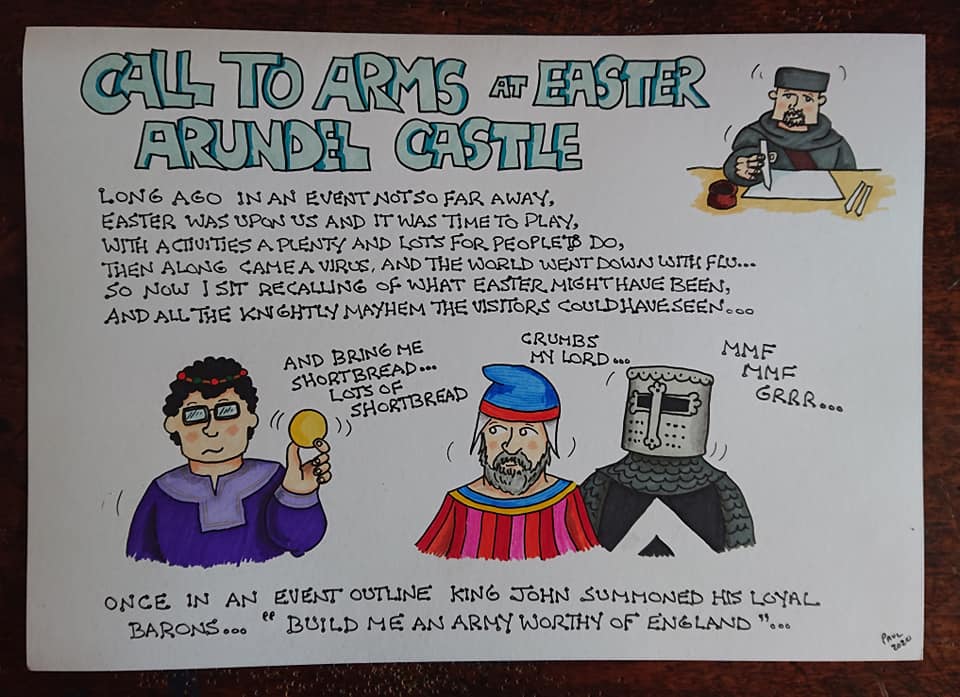 CALL TO ARMS AT EASTER
ARUNDEL CASTLE
LONG AGO IN AN EVENT NOT SO FAR AWAY,
EASTER WAS UPON US AND IT WAS TIME TO PLAY,
WITH ACTIVITIES A PLENTY AND LOTS FOR PEOPLE TO DO,
THEN ALONG CAME A VIRUS, AND THE WORLD WENT DOWN WITH FLU...
SO NOW I SIT RECALLING OF WHAT EASTER MIGHT HAVE BEEN,
AND ALL THE KNIGHTLY MAYHEM THE VISITORS COULD HAVE SEEN...
AND BRING ME
SHORTBREAD...
LOTS OF
SHORTBREAD
CRUMBS
MY LORD...
MMF
MMF
GRRR...
ONCE IN AN EVENT OUTLINE KING JOHN SUMMONED HIS LOYAL
BARONS... "BUILD ME AN ARMY WORTHY OF ENGLAND"...
PAUL
2020